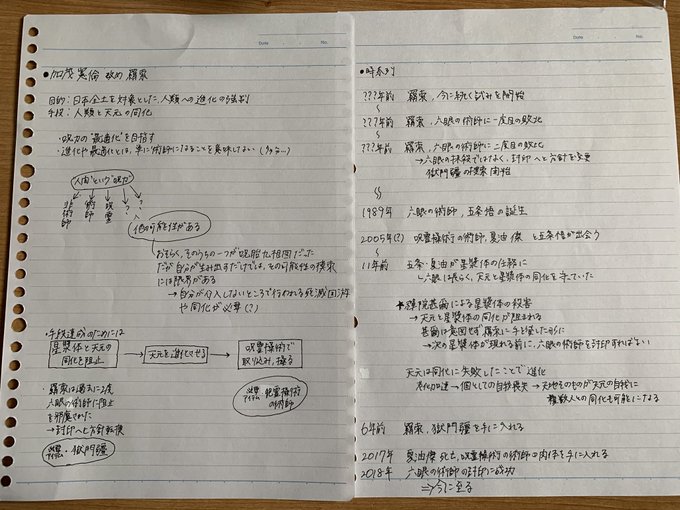 Date No.
●加茂憲倫 改め 羂索
目的：日本全土を対象とした、人類への進化の強制
手段：人類と天元の同化
・呪力の"最適化"を目指す
・進化や最適化とは、単に術師になることを意味しない
"人間"という"呪力"
非術師 術師 呪霊 ? ?
他の可能性がある
おそらく、そのうちの一つが呪胎九相図だった
だが自分が生み出すだけでは、その可能性の模索
には限界がある
→自分が介入しないところで行われる死滅回游
や同化が必要(?)
・手段達成のためには
星漿体と天元の同化を阻止 → 天元を進化させる → 呪霊操術で取り込み、操る
・羂索は過去に2度
六眼の術師に阻止
→封印へと方針転換
必要アイテム ・獄門疆
必要アイテム 呪霊操術の術師
Date No.
●時系列
???年前 羂索、今に続く試みを開始
???年前 羂索、六眼の術師に一度目の敗北
???年前 羂索、六眼の術師に二度目の敗北
→六眼の抹殺ではなく、封印へと方針を変更
獄門疆の捜索開始
1989年 六眼の術師、五条悟の誕生
2005年(?) 呪霊操術の術師、夏油傑と五条悟が出会う
11年前 五条・夏油が星漿体の任務に
による星漿体の殺害
→天元と星漿体の同化が阻まれる
甚爾は意図せず羂索に手を貸した形に
→次の星漿体が現れる前に、六眼の術師を封印すればよい
天元は同化に失敗したことで進化
老化加速→個としての自我喪失→天地そのものが天元の自我に
複数人との同化も可能になる
6年前 羂索、獄門疆を手に入れる
2017年 夏油傑死亡、呪霊操術の術師の肉体を手に入れる
2018年 六眼の術師の封印に成功
⇒今に至る